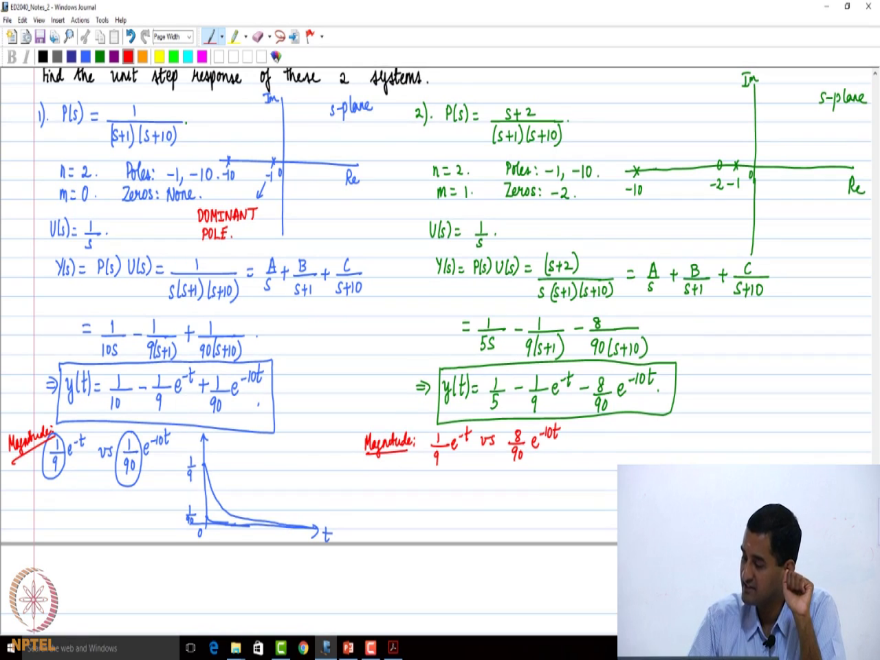 ED2040_Notes_2 - Windows Journal
File Edit View Insert Actions Tools Help
Page Width
B I
Find the unit step response of these 2 systems.
1). P(s) = 1 / (s+1)(s+10) .
Im
s-plane
-10 -1 0
Re
n=2. Poles: -1, -10.
m=0. Zeros: None.
DOMINANT
POLE.
U(s) = 1/s .
Y(s) = P(s) U(s) = 1 / s(s+1)(s+10) = A/s + B/s+1 + C/s+10
= 1/10s - 1/9(s+1) + 1/90(s+10) .
⇒ y(t) = 1/10 - 1/9 e^-t + 1/90 e^-10t .
Magnitude: 1/9 e^-t vs 1/90 e^-10t
1/9
1/90
0
t
2). P(s) = s+2 / (s+1)(s+10) .
Im
s-plane
-10 -2 -1 0
Re
n=2. Poles: -1, -10.
m=1. Zeros: -2.
U(s) = 1/s .
Y(s) = P(s) U(s) = (s+2) / s(s+1)(s+10) = A/s + B/s+1 + C/s+10
= 1/5s - 1/9(s+1) - 8/90(s+10)
⇒ y(t) = 1/5 - 1/9 e^-t - 8/90 e^-10t .
Magnitude: 1/9 e^-t vs 8/90 e^-10t
NPTEL
the web and Windows